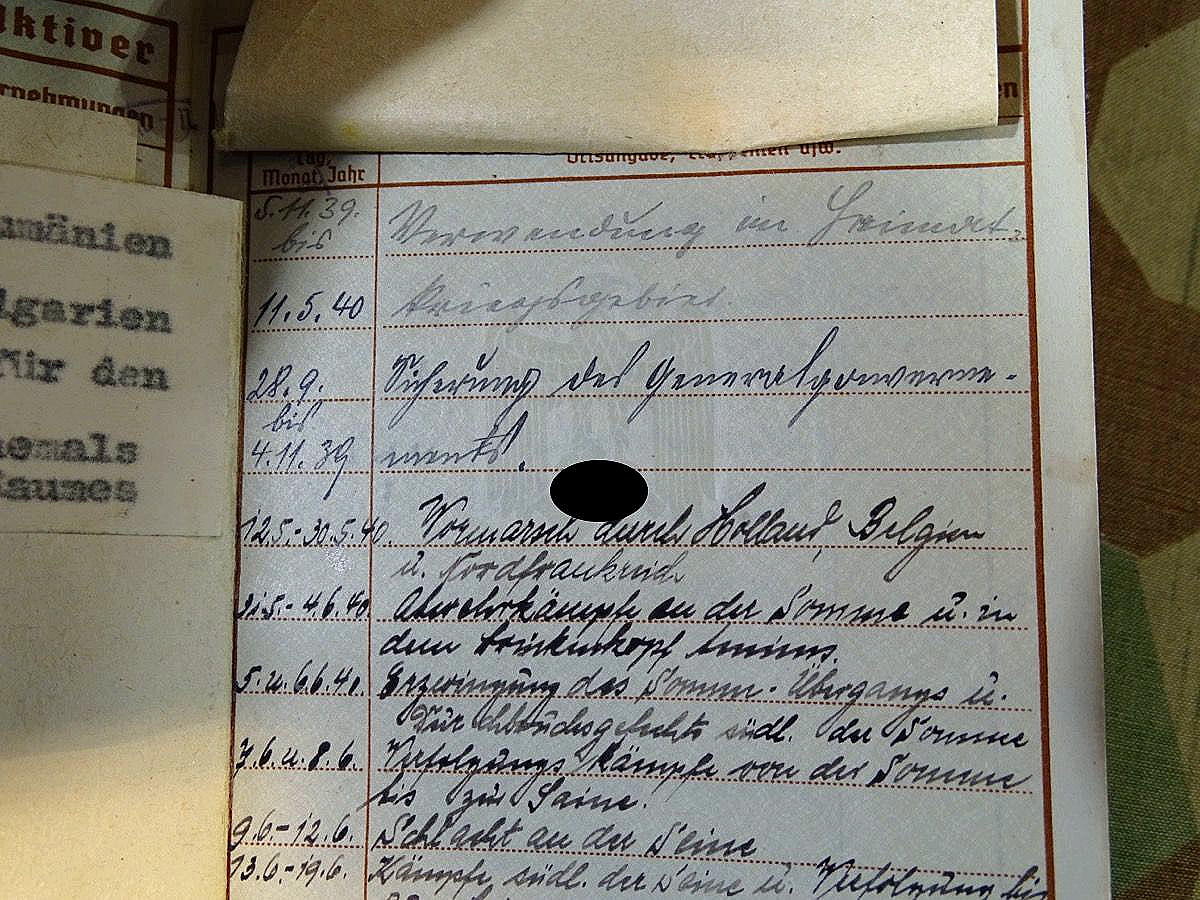 aktiver
rnehmungen
umänien
lgarien
für den
emals
Raumes
en
Tag,
Monat, Jahr
Ortsangabe, usw.
5.11.39. Verwendung im Heimat-
bis
11.5.40 kriegsgebiet.
28.9. Sicherung des Generalgouverne-
bis
4.11.39 ments.
12.5.-30.5.40. Vormarsch durch Holland, Belgien
u. Nordfrankreich
31.5.-4.6.40 Abwehrkämpfe an der Somme u. in
dem Brückenkopf Amiens.
5.u.6.6.40. Erzwingung des Somme-Übergangs u.
Durchbruchsgefechte südl. der Somme
7.6.u.8.6. Verfolgungskämpfe von der Somme
bis zur Seine.
9.6.-12.6. Schlacht an der Seine
13.6.-19.6. Kämpfe südl. der Seine u. Verfolgung bis